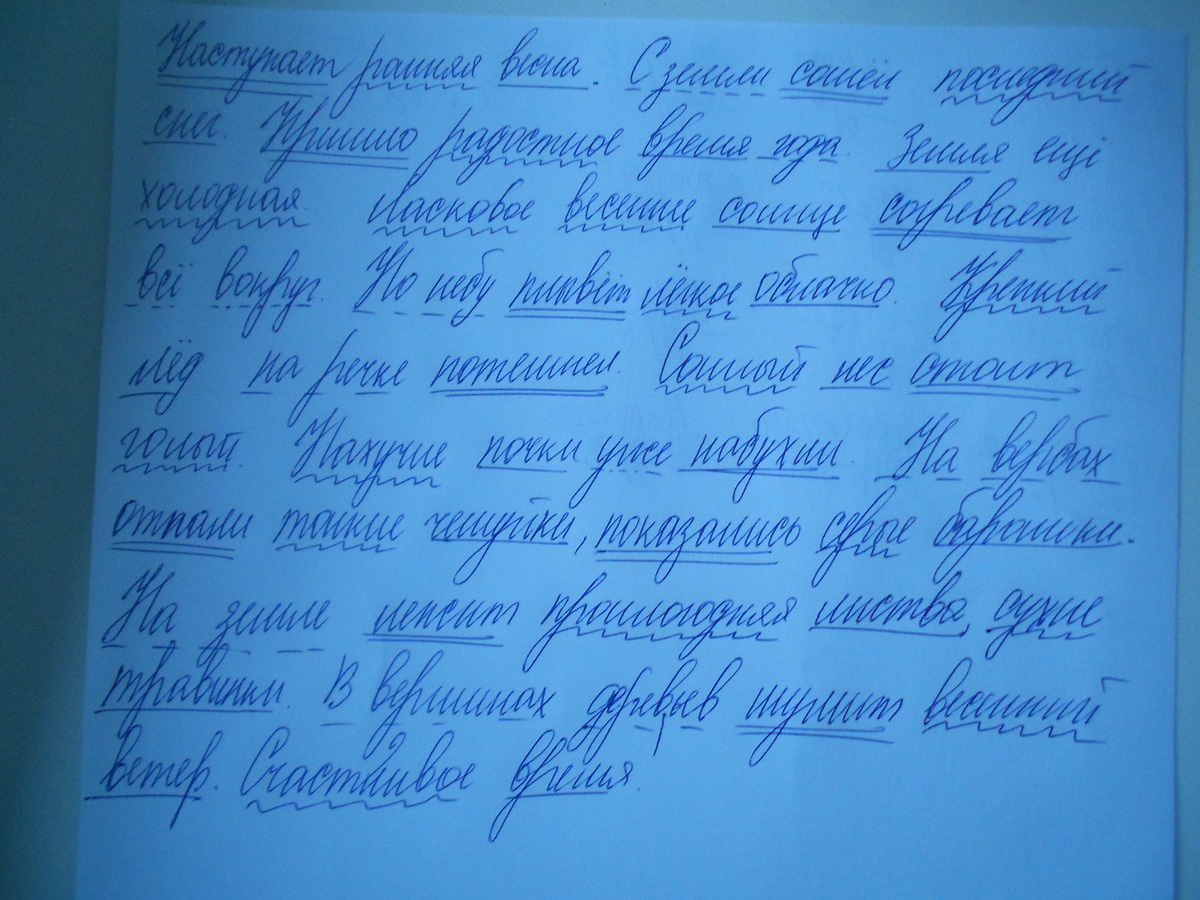 Наступает ранняя весна. С земли сошёл последний
снег. Пришло радостное время года. Земля ещё
холодная. Ласковое весеннее солнце согревает
всё вокруг. По небу плывёт лёгкое облачко. Крепкий
лёд на речке потемнел. Сонный лес стоит
голый. Пахучие почки уже набухли. На вербах
отпали тонкие чешуйки, показались серые барашки.
На земле лежит прошлогодняя листва, сухие
травинки. В вершинах деревьев шумит весенний
ветер. Счастливое время.